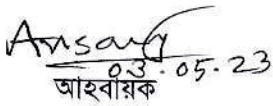 Ansary
03.05.23
আহবায়ক